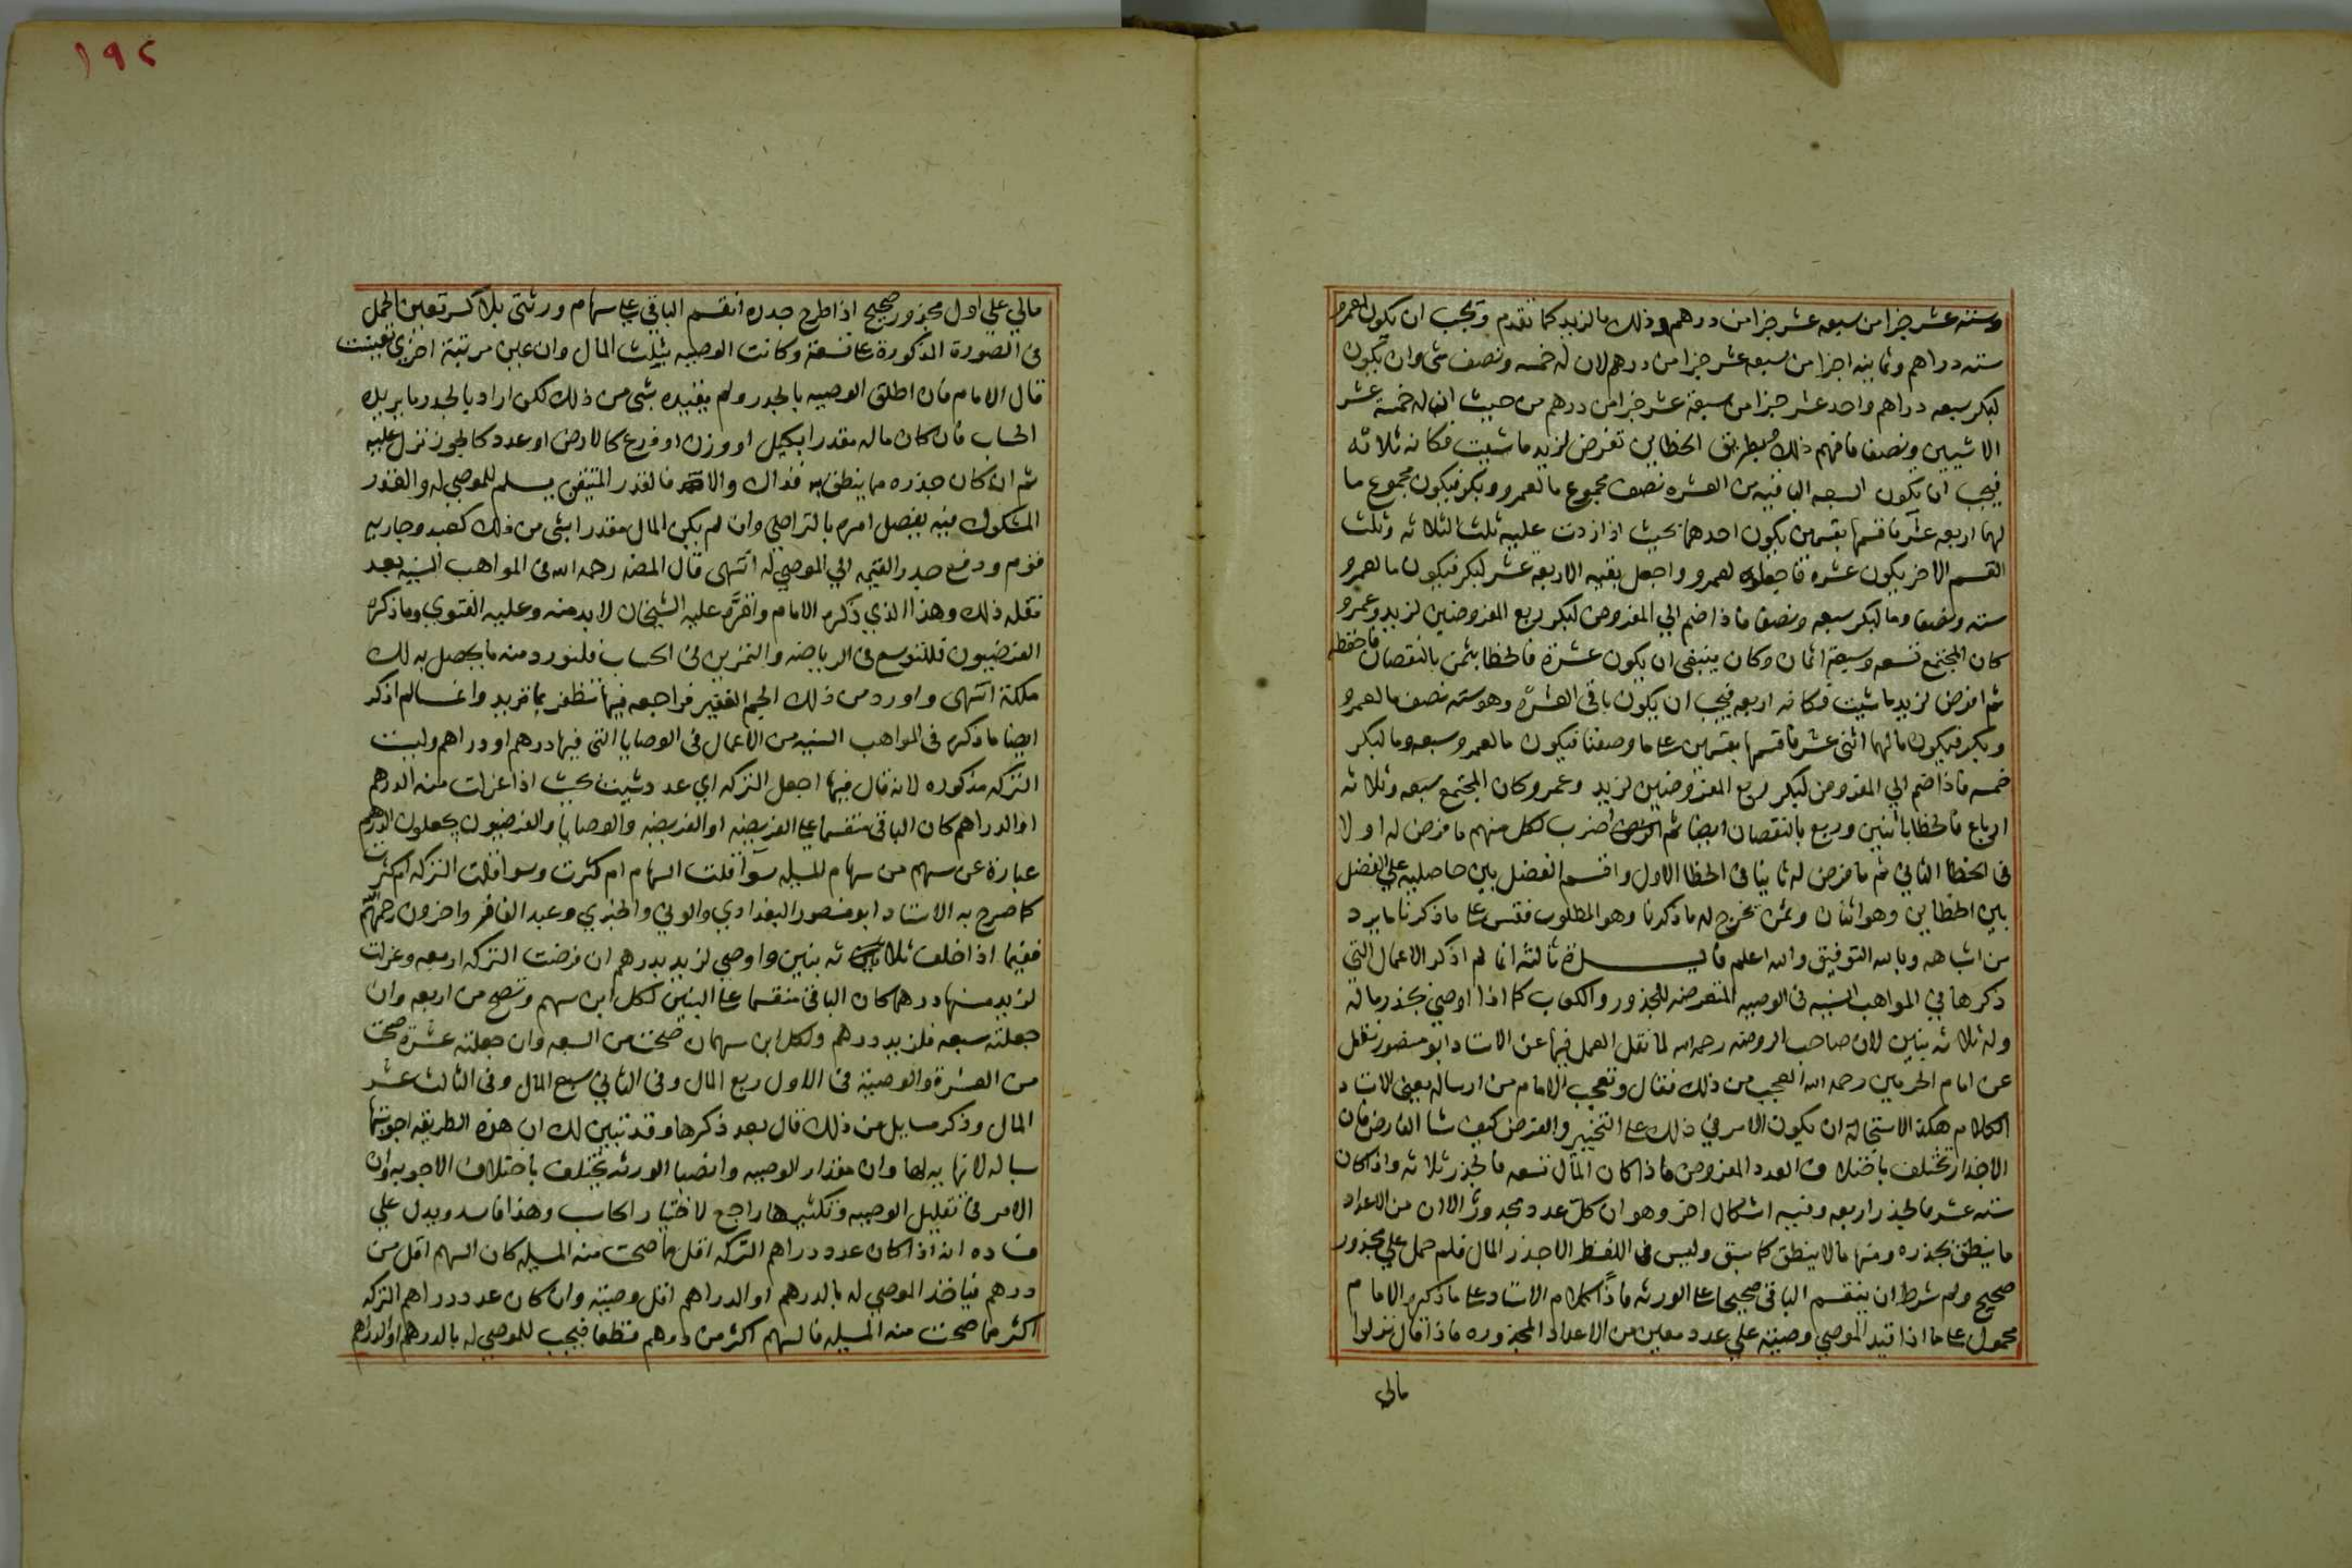 وستة عشر جزا من سبعه عشر جزا من درهم وذلك مالزيد كما تقدم ويجب ان يكون لعمرو
سته دراهم وثمانيه اجزا من سبعه عشر جزا من درهم لان له خمسه ونصف شي وان يكون
لبكر سبعه دراهم واحد عشر جزا من سبعة عشر جزا من درهم من حيث ان له خمسة عشر
الا شيين ونصفا فافهم ذلك وبطريق الخطاين تفرض لزيد ما شيت فكانه ثلاثه
فيجب ان يكون السبعه الباقيه من العشره نصف مجموع مالعمرو وبكر فيكون مجموع ما
لهما اربعه عشر فاقسمها بقسمين يكون احدهما بحيث اذا زدت عليه ثلث الثلاثه وثلث
القسم الاخر يكون عشره فاجعله لعمرو واجعل بقيه الاربعة عشر لبكر فيكون مالعمرو
سته ونصفا وما لبكر سبعه ونصفا فاذا ضم الي المفروض لبكر ربع المفروضين لزيد وعمرو
كان المجتمع تسعه وسبعة اثمان وكان ينبغي ان يكون عشرة فالخطا بثمن بالنقصان فاحفظه
ثم افرض لزيد ما شيت فكانه اربعه فيجب ان يكون باقي العشره وهو سته نصف مالعمرو
وبكر فيكون مالهما اثني عشر فاقسمها بقسمين علي ما وصفنا فيكون مالعمرو سبعه وما لبكر
خمسه فاذا ضم الي المفروض لبكر ربع المفروضين لزيد وعمرو كان المجتمع سبعه وثلاثه
ارباع فالخطا باثنين وربع بالنقصان ايضا ثم اضرب لكل منهم ما فرض له اولا
في الخطا الثاني ثم ما فرض له ثانيا في الخطا الاول واقسم الفضل بين حاصليه علي الفضل
بين الخطاين وهو اثنان وثمن يخرج له ما ذكرنا وهو المطلوب فقس علي ما ذكرنا ما يرد
من اشباهه وبالله التوفيق والله اعلم فايدة ثالثه انما لم اذكر الاعمال التي
ذكرها في المواهب السنيه في الوصيه المتعرضه للجذور والكعاب كما اذا اوصي بجذر ماله
وله ثلاثه بنين لان صاحب الروضه رحمه الله لما نقل العمل فيها عن الاستاد ابو منصور نقل
عن امام الحرمين رحمه الله العجب من ذلك فقال وتعجب الامام من ارساله يعني الاستاد
الكلام هكذا لاستحالة ان يكون الامر في ذلك علي التخيير والفرض كيف شا الفارض فان
الاجذار تختلف باختلاف العدد المفروض فاذا كان المال تسعه فالجذر ثلاثه واذا كان
سته عشر فالجذر اربعه وفيه اشكال اخر وهو ان كل عدد مجدوز الا ان من الاعداد
ما ينطق بجذره ومنها ما لا ينطق كما سبق وليس في اللفظ الا جذر المال فلم حمل علي مجذور
صحيح ولم شرط ان ينقسم الباقي صحيحا علي الورثه فاذا كلام الاستاد علي ما ذكره الامام
محمول علي ما اذا قيد الموصي وصيته علي عدد معين من الاعداد المجذوره فاذا قال نزلوا
مالي
١٩٢
مالي علي اول مجذور صحيح اذا طرح جدره انقسم الباقي علي سهام ورثتي بلا كسر تعين الحمل
في الصورة المذكورة علي تسعة وكانت الوصيه بثلث المال وان عين مرتبة اخري تعينت
قال الامام فان اطلق الوصيه بالجدر ولم يقيده بشي من ذلك لكن اراد بالجدر ما يريده
الحساب فان كان ماله مقدرا بكيل او وزن او ذرع كالارض او عدد كالجوز نزل عليه
ثم ان كان جذره مما ينطق به فذاك والا فالقدر المتيقن يسلم للموصي له والقدر
المشكوك فيه يفصل امره بالتراضي وان لم يكن المال مقدرا بشي من ذلك كعبد وجاريه
قوم ودفع جدر القيمه الي الموصي له انتهي قال المصنف رحمه الله في المواهب السنيه بعد
نقله ذلك وهذا الذي ذكره الامام واقره عليه الشيخان لابد منه وعليه الفتوي وما ذكره
الفرضيون فللتوسع في الرياضه والتمرين في الحساب فلنورد منه ما يحصل به لك
ملكة انتهي واورد من ذلك الجم الغفير فراجعه فيها تظفر بما تريد وانما لم اذكر
ايضا ما ذكره في المواهب السنيه من الاعمال في الوصايا التي فيها درهم او دراهم وليست
التركه مذكوره لانه قال فيها اجعل التركه اي عدد شيت بحيث اذا عزلت منه الدرهم
او الدراهم كان الباقي منقسما علي الفريضه او الفريضه والوصايا والفرضيون يجعلون الدرهم
عبارة عن سهم من سهام المسيله سوا قلت السهام ام كثرت وسوا قلت التركه ام كثرت
كما صرح به الاستاد ابو منصور البغدادي والوني والخبري وعبد الغافر واخرون رحمهم الله
ففيما اذا خلف ثلاثه بنين واوصي لزيد بدرهم ان فرضت التركه اربعه وعزلت
لزيد منها درهما كان الباقي منقسما علي البنين لكل ابن سهم وتصح من اربعه وان
جعلته سبعه فلزيد درهم ولكل ابن سهمان صحت من السبعه وان جعلته عشره صحت
من العشرة والوصية في الاول ربع المال وفي الثاني سبع المال وفي الثالث عشر
المال وذكر مسايل من ذلك قال بعد ذكرها وقد تبين لك ان هذه الطريقه اجوبتها
سياله لا نهايه لها وان مقدار الوصيه وانصبا الورثه يختلف باختلاف الاجوبه وان
الامر في تقليل الوصيه وتكثيرها راجع لاختيار الحاسب وهذا فاسد ويدل علي
فساده انه اذا كان عدد دراهم التركه اقل مما صحت منه المسيله كان السهم اقل من
درهم فياخذ الموصي له بالدرهم او الدراهم اقل وصيته وان كان عدد دراهم التركه
اكثر مما صحت منه المسيله فالسهم اكثر من درهم قطعا فيجب للموصي له بالدرهم او الدراهم